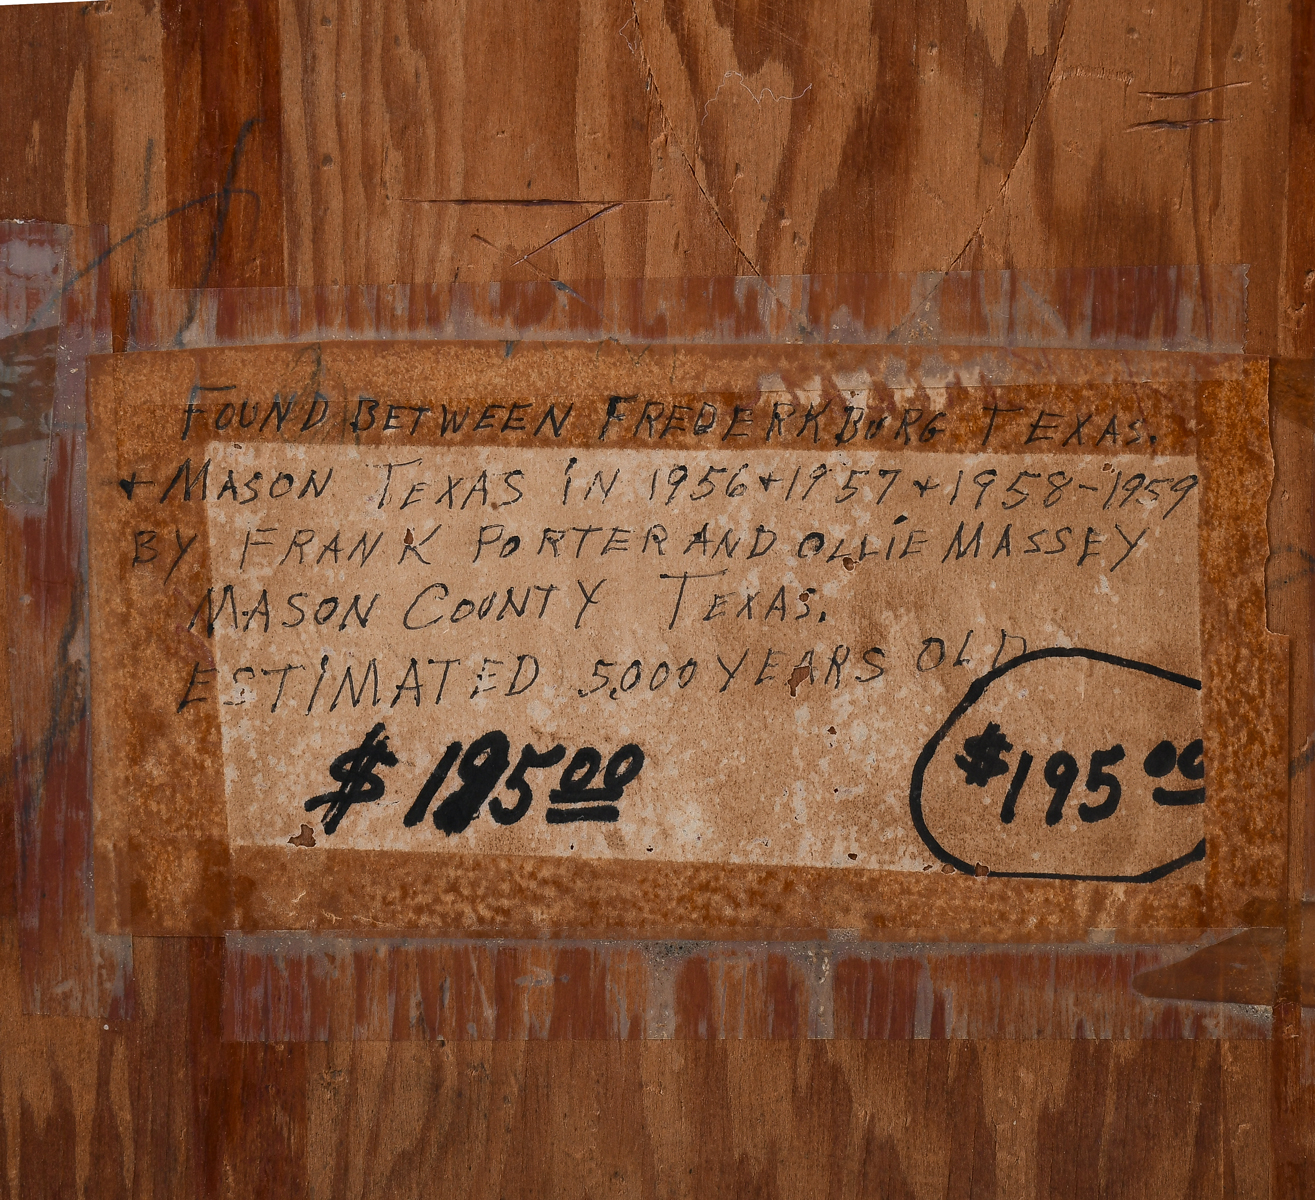 FOUND BETWEEN FREDERKBURG TEXAS.
+ MASON TEXAS IN 1956+1957+1958-1959
BY FRANK PORTER AND OLLIE MASSEY
MASON COUNTY TEXAS.
ESTIMATED 5,000 YEARS OLD
$195.00 $195.00